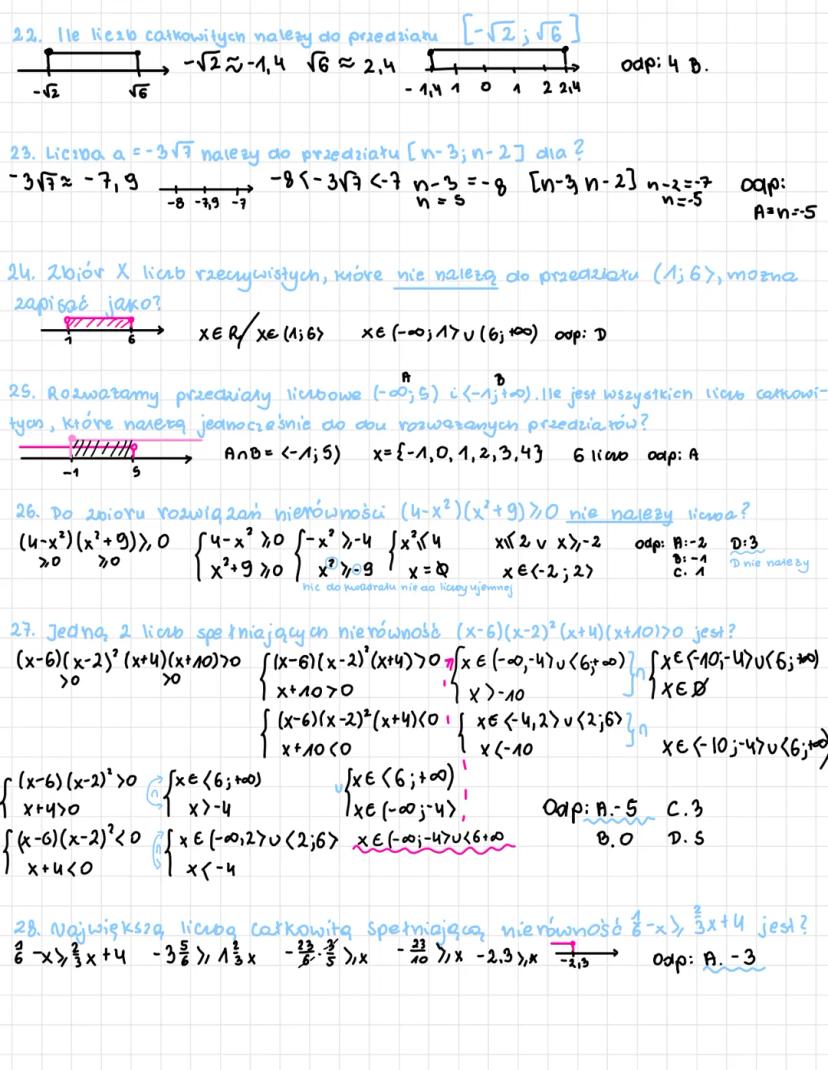 22. Ile liczb całkowitych należy do przedziału [-√2 ; √6]
-√2 ≈ -1,4 √6 ≈ 2,4 odp: 4 B.
-√2 √6 -1,4 1 0 1 2 2,4
23. Liczba a = -3√7 należy do przedziału [n-3; n-2] dla?
-3√7 ≈ -7,9 -8 < -3√7 < -7 n-3 = -8 [n-3, n-2] n-2 = -7 odp:
-8 -7,9 -7 n = 5 n = -5 A = n = -5
24. Zbiór X liczb rzeczywistych, które nie należą do przedziału (1; 6>, można
zapisać jako?
1 6 x∈R/x∈(1;6> x∈(-∞;1>∪(6;+∞) odp: D
A B
25. Rozważamy przedziały liczbowe (-∞;5) i <-1;+∞). Ile jest wszystkich liczb całkowi-
tych, które należą jednocześnie do obu rozważanych przedziałów?
-1 5 A∩B = <-1;5) x={-1,0,1,2,3,4} 6 liczb odp: A
26. Do zbioru rozwiązań nierówności (4-x²)(x²+9)≥0 nie należy liczba?
(4-x²)(x²+9)≥0 { 4-x²≥0 { -x²≥-4 { x²≤4 x≤2 ∨ x≥-2 odp: A:-2 D:3
≥0 ≥0 x²+9≥0 x²≥-9 x=∅ x∈<-2;2> B:-1 D nie należy
C. 1
nic do kwadratu nie da liczby ujemnej
27. Jedną z liczb spełniających nierówność (x-6)(x-2)²(x+4)(x+10)>0 jest?
(x-6)(x-2)²(x+4)(x+10)>0 { (x-6)(x-2)²(x+4)>0 { x∈(-∞,-4>∪<6;+∞) } ∩ { x∈<-10;-4>∪<6;+∞)
>0 >0 x+10>0 x>-10 x∈∅
{ (x-6)(x-2)²(x+4)<0 { x∈<-4,2>∪<2;6> } ∩
x+10<0 x<-10 x∈<-10;-4>∪<6;+∞
{ (x-6)(x-2)²>0 ∩ { x∈<6;+∞) ∪ { x∈<6;+∞)
x+4>0 x>-4 x∈(-∞;-4> Odp: A.-5 C.3
{ (x-6)(x-2)²<0 ∩ { x∈(-∞,2>∪<2;6> x∈(-∞;-4>∪<6+∞ B.0 D.5
x+4<0 x<-4
28. Największą liczbą całkowitą spełniającą nierówność 1/6-x≥2/3x+4 jest?
1/6-x≥2/3x+4 -3 5/6≥1 2/3x -23/6·3/5≥x -23/10≥x -2,3≥x -2,3 Odp: A. -3